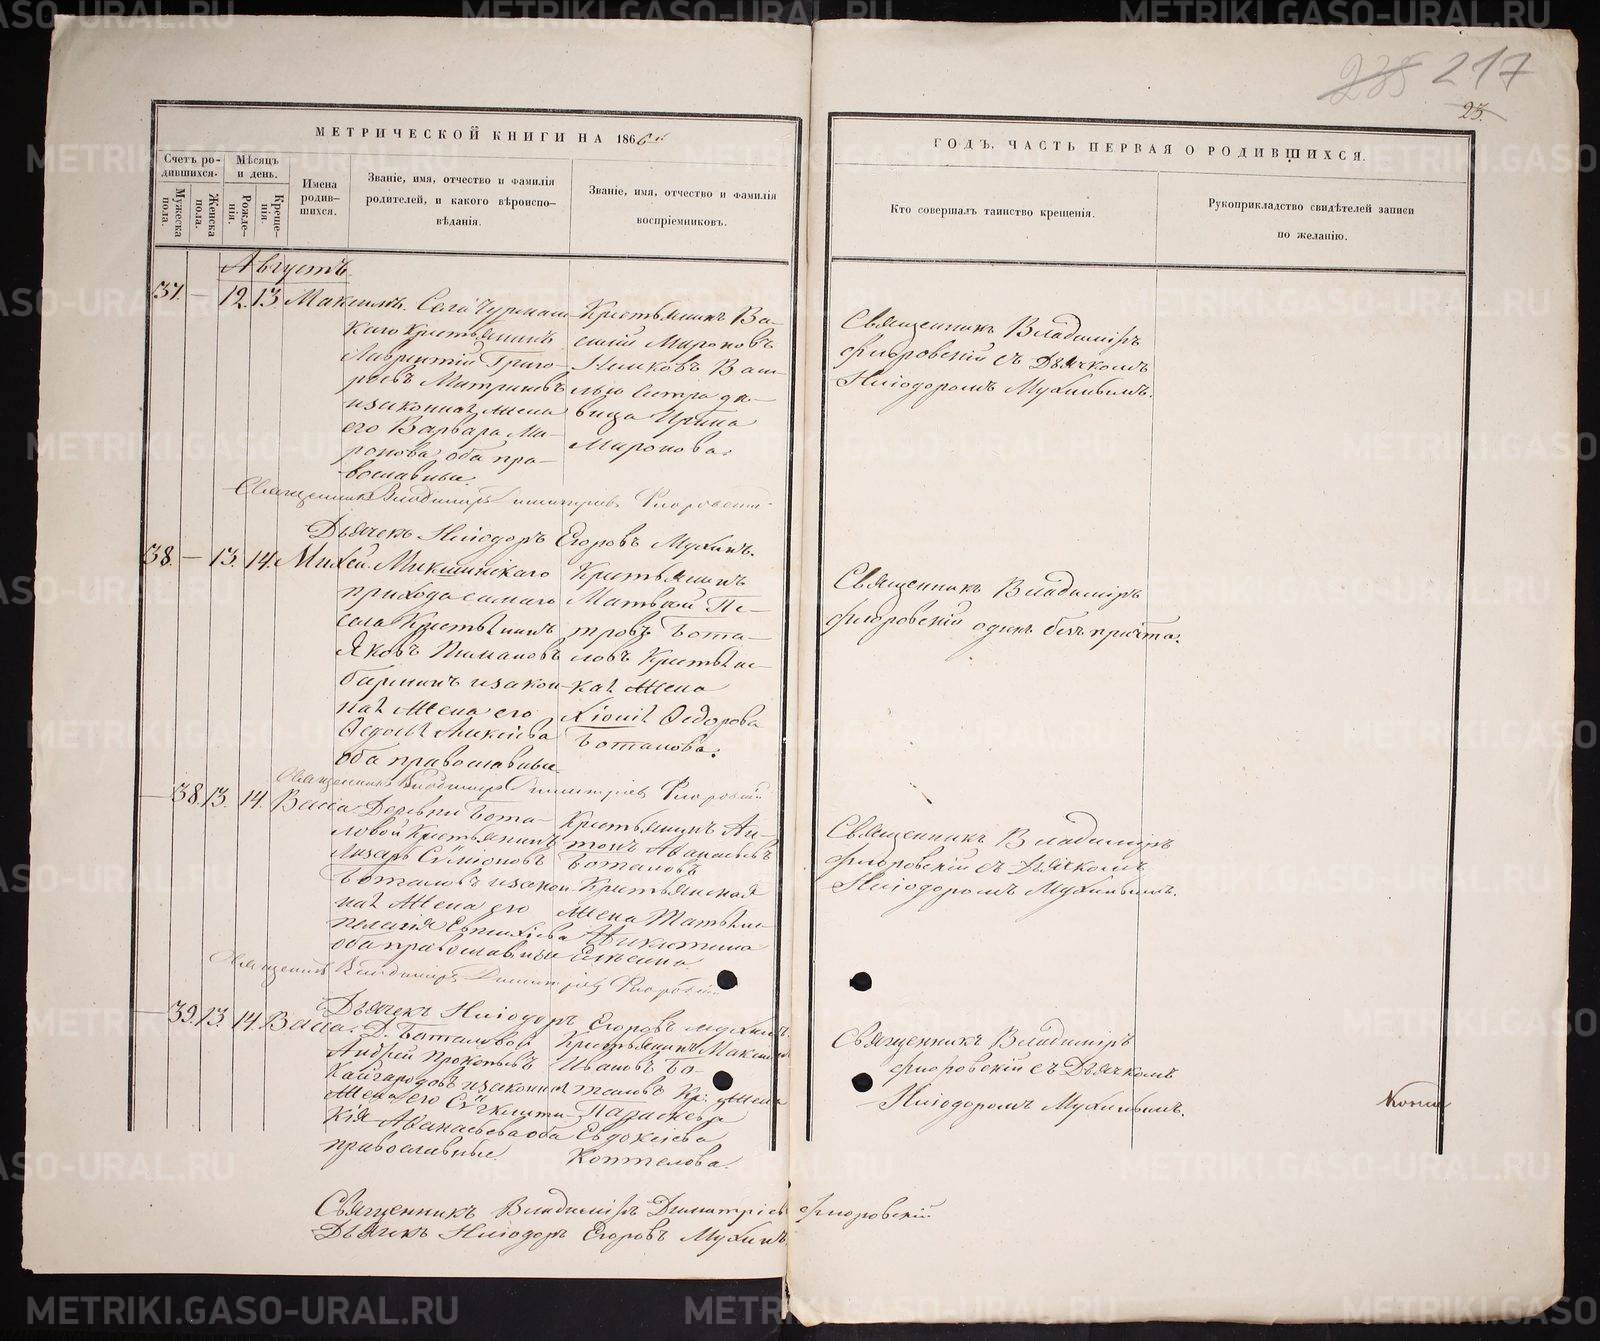 235 217
23.
МЕТРИЧЕСКОЙ КНИГИ НА 1866й
ГОДЪ, ЧАСТЬ ПЕРВАЯ О РОДИВШИХСЯ.
Счетъ ро-
дившихся.
Мужеска
пола.
Женска
пола.
Мѣсяцъ
и день.
Рожде-
нія.
Креще-
нія.
Имена
родив-
шихся.
Званіе, имя, отчество и фамилія
родителей, и какого вѣроиспо-
вѣданія.
Званіе, имя, отчество и фамилія
воспріемниковъ.
Кто совершалъ таинство крещенія.
Рукоприкладство свидѣтелей записи
по желанію.
Августъ
37. — 12. 13 Максимъ.
Села
каго крестьянинъ
Лаврентій Григо-
рьевъ
и законная жена
его Варвара Ми-
ронова, оба пра-
вославные.
Крестьянинъ Ва-
силій Мироновъ
сестра дѣ-
вица Ирина
Миронова.
Священникъ Владиміръ
Флоровскій съ Дьячкомъ
Иліодоромъ Мухинымъ.
Священникъ Владиміръ Димитріевъ Флоровскій
Дьячекъ Иліодоръ Егоровъ Мухинъ.
38. — 13. 14. Михей.
прихода самаго
села Крестьянинъ
Яковъ
и закон-
ная жена его
оба православные
Крестьянинъ
Матвей Пе-
тровъ Бота-
ловъ Крестьянс-
кая жена
Хіонія Ѳедорова
Боталова.
Священникъ Владиміръ
Флоровскій одинъ безъ причта.
Священникъ Владиміръ Димитріевъ Флоровскій
— 38. 13. 14. Васса
Деревни Бота-
ловой Крестьянинъ
Лазарь Сѵмеоновъ
Боталовъ и закон-
ная жена его
Пелагія
оба православные
Крестьянинъ Ан-
тонъ Аѳанасьевъ
Боталовъ
Крестьянская
жена Татьяна
Никитина
Елькина
Священникъ Владиміръ
Флоровскій съ Дьячкомъ
Иліодоромъ Мухинымъ.
Священникъ Владиміръ Димитріевъ Флоровскій
Дьячекъ Иліодоръ Егоровъ Мухинъ.
— 39. 13. 14. Васса.
Д. Боталовой
Андрей Прокопьевъ
Кайгородовъ и законная
жена его Сѵнклити-
кія Аѳанасьева оба
православные.
Крестьянинъ Максимъ
Ивановъ Бо-
таловъ Кр. жена
Параскева
Евдокіева
Коптелова.
Священникъ Владиміръ
Флоровскій съ Дьячкомъ
Иліодоромъ Мухинымъ.
Священникъ Владиміръ Димитріевъ Флоровскій
Дьячекъ Иліодоръ Егоровъ Мухинъ.
METRIKI.GASO-URAL.RU